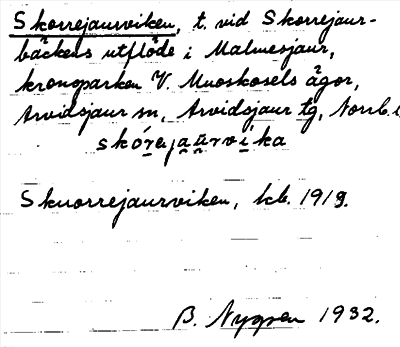 Skorrejaurviken, t. vid Skorrejaur-
bäckens utflöde i Malmesjaur,
kronoparken V. Muoskosels ägor,
Arvidsjaur sn, Arvidsjaur tg, Norrb. l
skórejau̇rvika
Skuorrejaurviken, kb. 1919.
B. Nygren 1932.